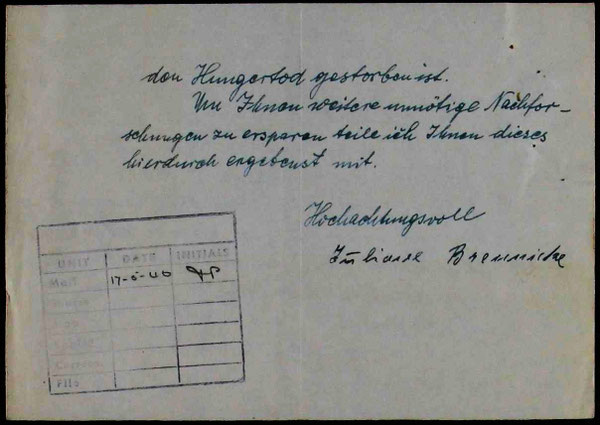 den Hungertod gestorben ist.
Um Ihnen weitere unnötige Nachfor-
schungen zu ersparen teile ich Ihnen dieses
hierdurch ergebenst mit.
Hochachtungsvoll
Juliane
UNIT DATE INITIALS
17-5-46
File